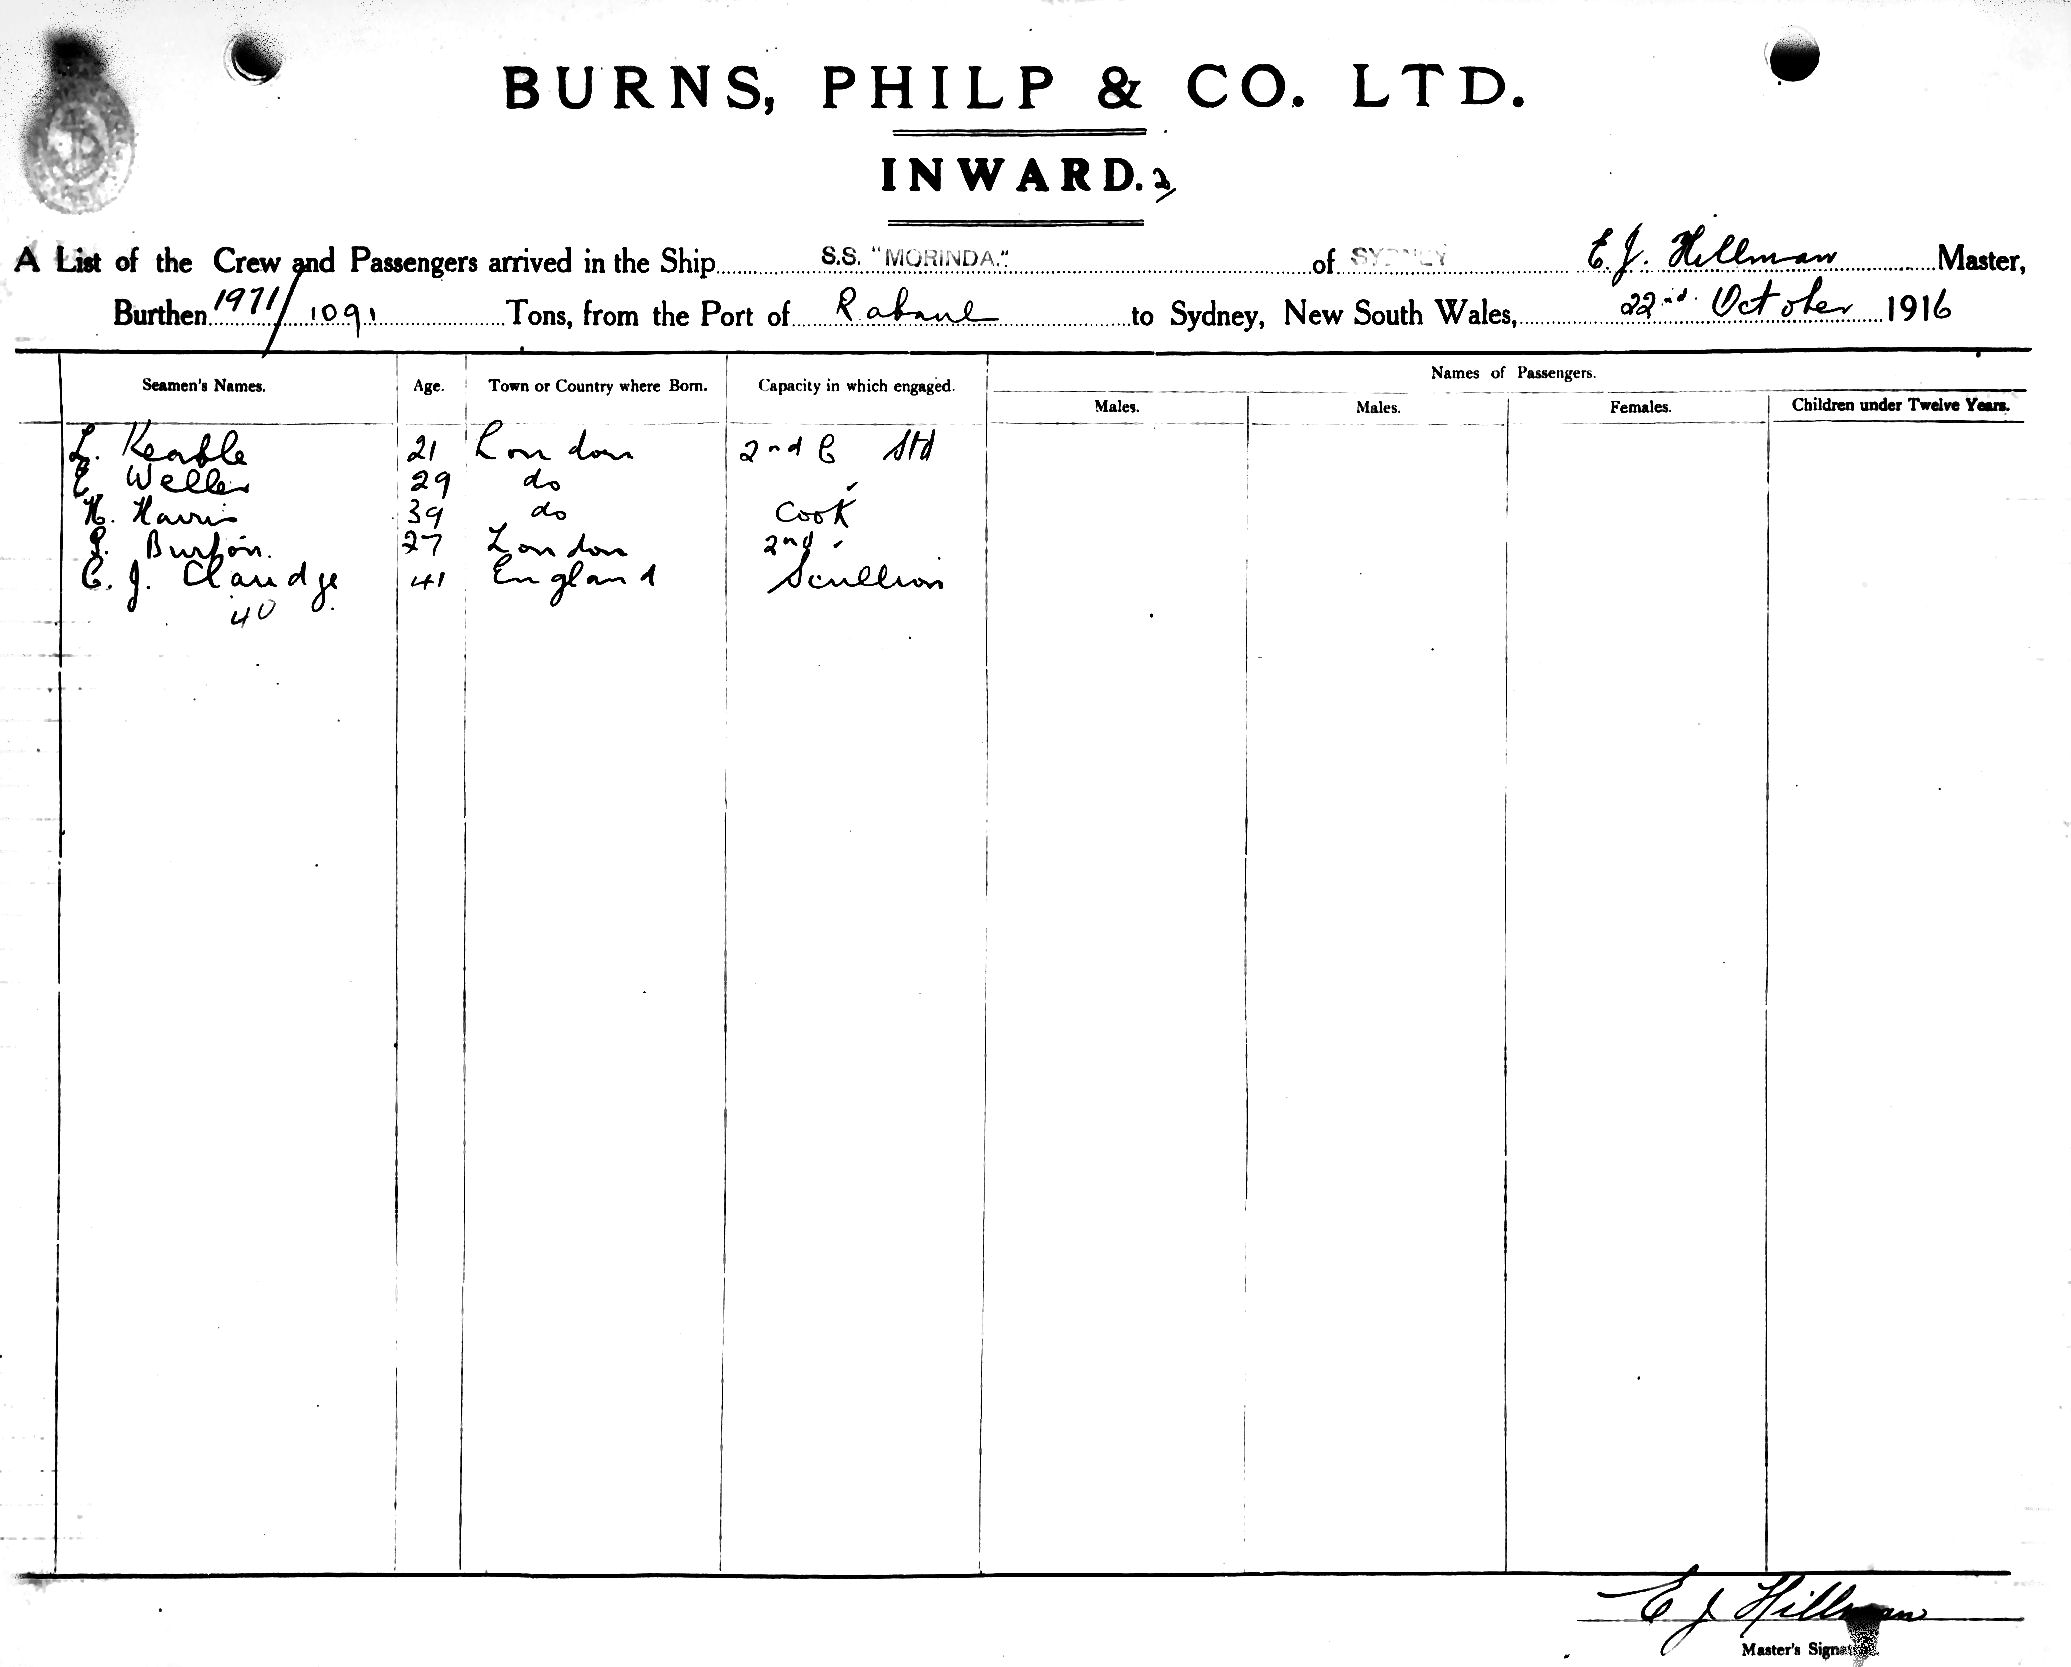 BURNS, PHILP & CO. LTD.
INWARD. 2/
A List of the Crew and Passengers arrived in the Ship S.S. "MORINDA." of SYDNEY E. J. Hillman Master,
Burthen 1971/1091 Tons, from the Port of Rabaul to Sydney, New South Wales, 22nd October 1916
Seamen's Names. Age. Town or Country where Born. Capacity in which engaged. Names of Passengers.
Males. Males. Females. Children under Twelve Years.
L. Keable 21 London 2nd C Std
E Weller 29 do "
H. Harris 39 do Cook
Burton. 27 London 2nd "
C. J. Claridge 41 England Scullion
40
E J Hillman
Master's Signature